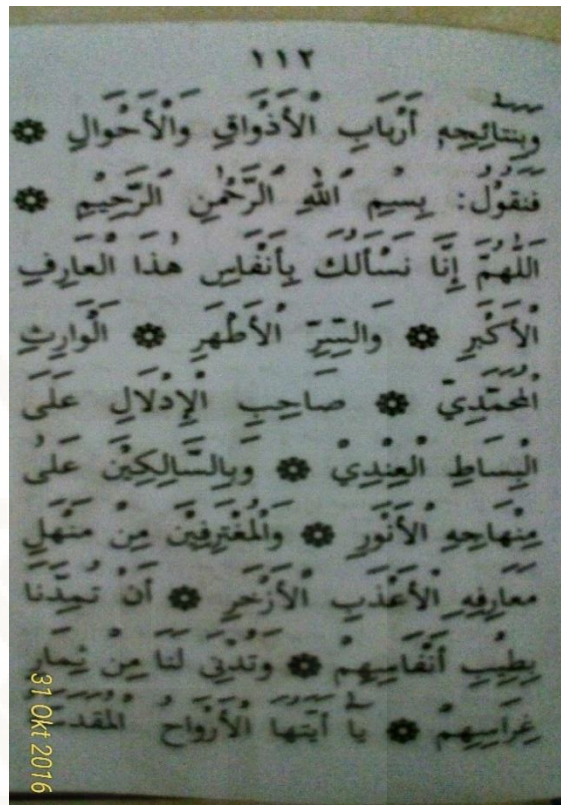 ١١٢
وَبِنَتَائِجِهِ أَرْبَابِ الْأَذْوَاقِ وَالْأَحْوَالِ ۞
فَنَقُوْلُ: بِسْمِ اللهِ الرَّحْمٰنِ الرَّحِيْمِ ۞
اَللّٰهُمَّ إِنَّا نَسْأَلُكَ بِأَنْفَاسِ هٰذَا الْعَارِفِ
الْأَكْبَرِ ۞ وَالسِّرِّ الْأَطْهَرِ ۞ اَلْوَارِثِ
الْمُحَمَّدِيِّ ۞ صَاحِبِ الْإِدْلَالِ عَلَى
الْبِسَاطِ الْعِنْدِيْ ۞ وَبِالسَّالِكِيْنَ عَلٰى
مِنْهَاجِهِ الْأَنْوَرِ ۞ وَالْمُغْتَرِفِيْنَ مِنْ مَنْهَلِ
مَعَارِفِهِ الْأَعْذَبِ الْأَزْخَرِ ۞ أَنْ تُمِدَّنَا
بِطِيْبِ أَنْفَاسِهِمْ ۞ وَتُدْنِيَ لَنَا مِنْ ثِمَارِ
غِرَاسِهِمْ ۞ يَا أَيَّتُهَا الْأَرْوَاحُ الْمُقَدَّسَةُ
31 Okt 2016